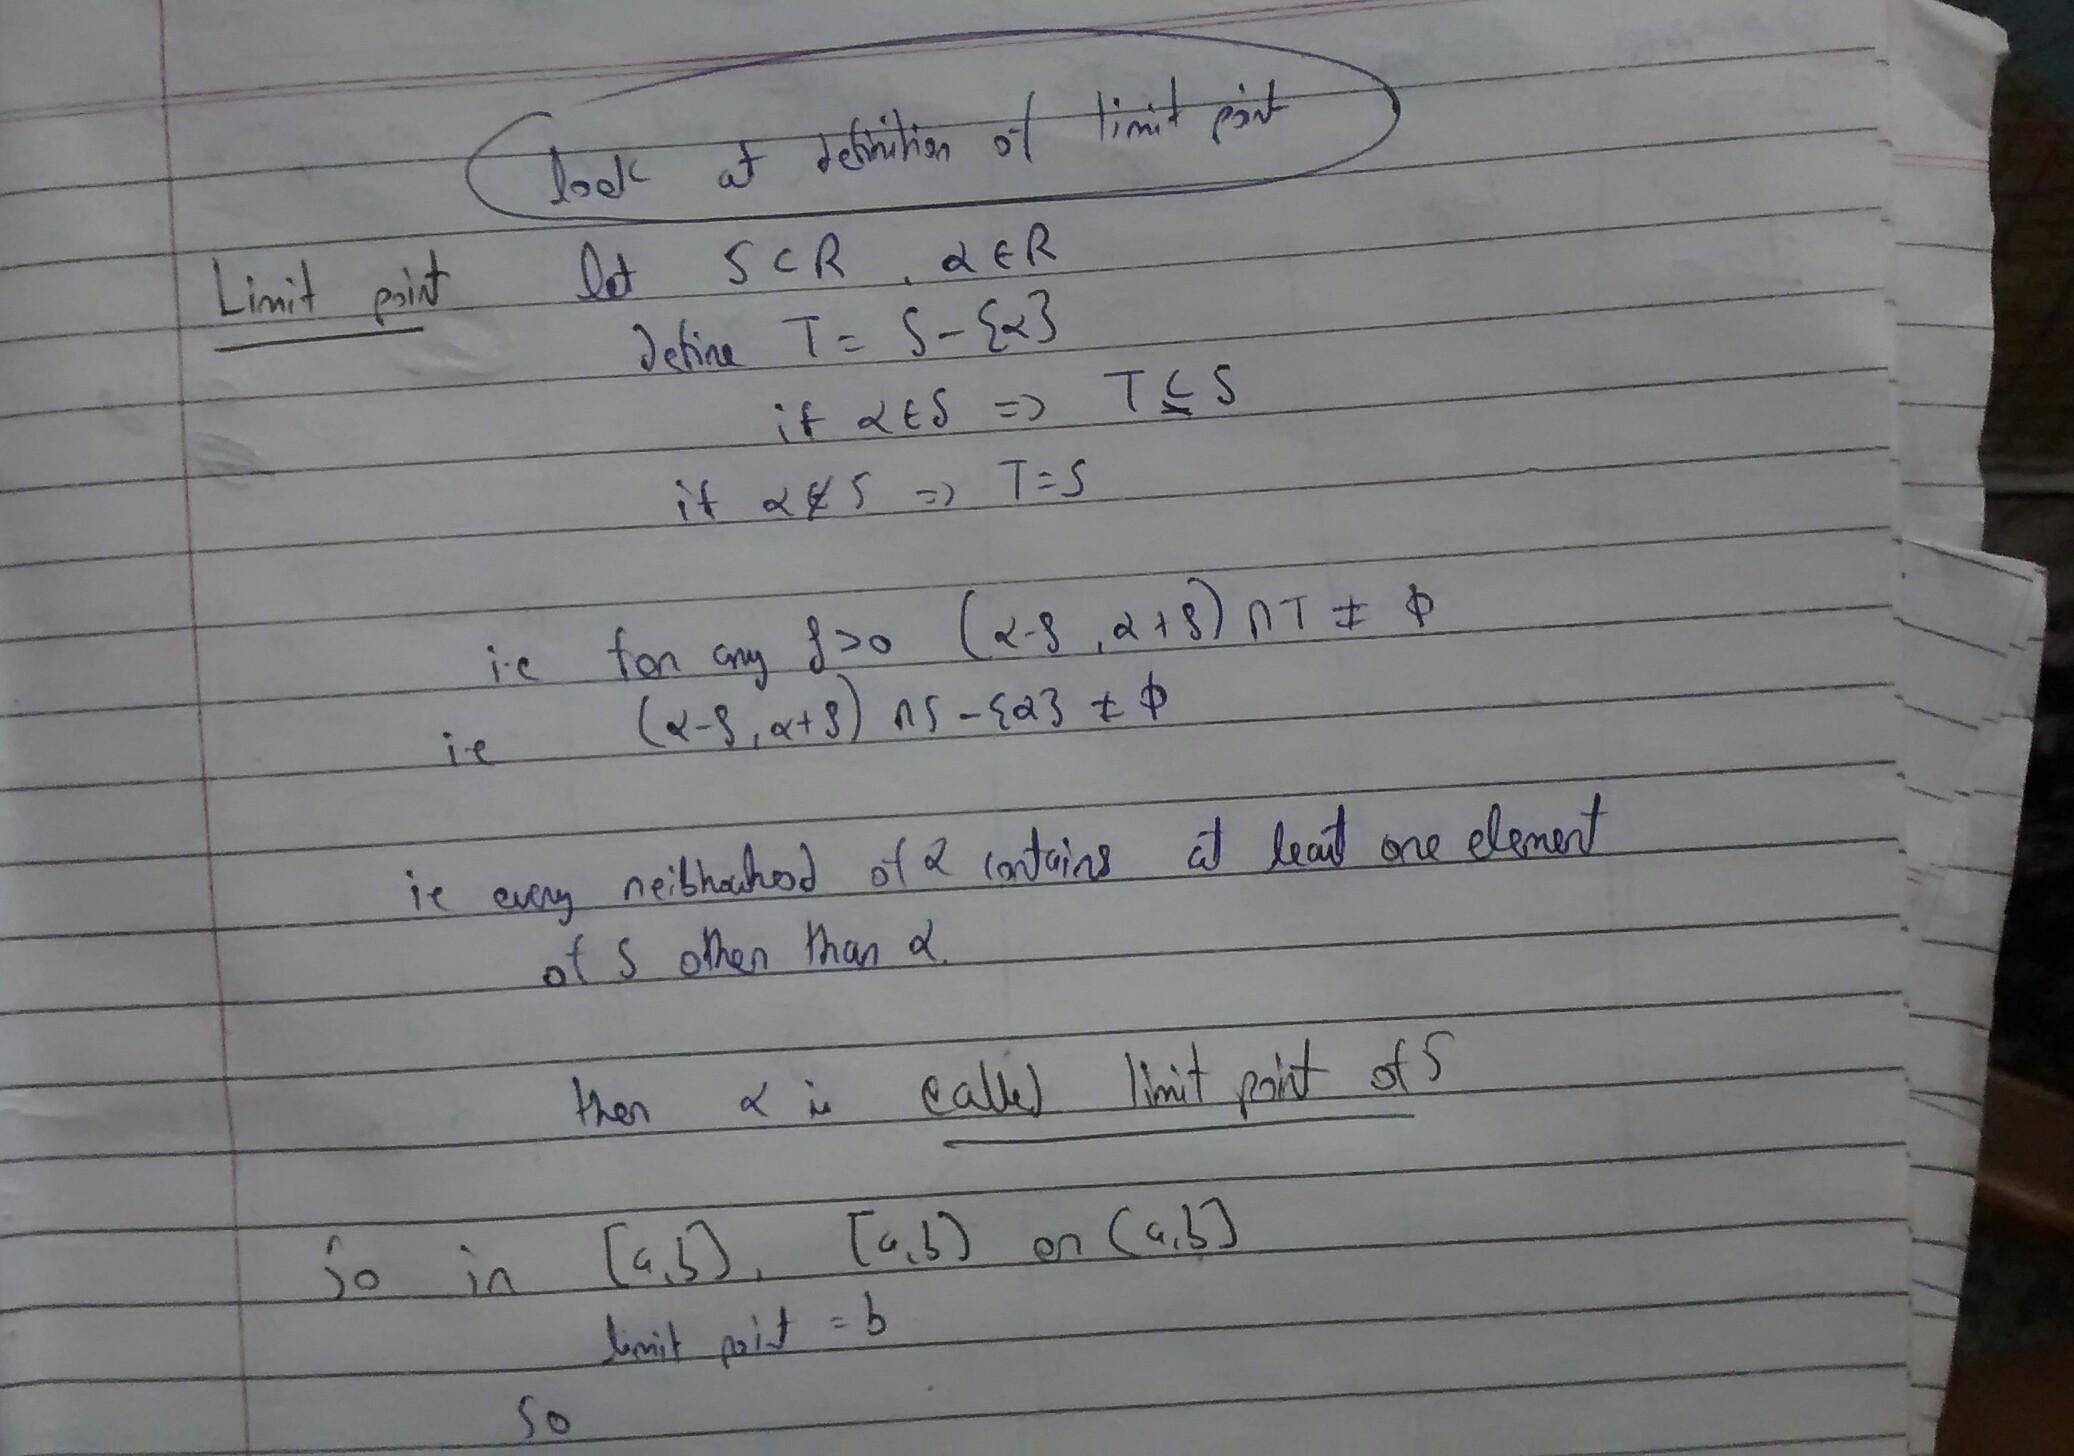 look at definition of limit point
Limit point let S⊂R , α∈R
define T = S-{α}
if α∈S => T⊆S
if α∉S => T=S
i.e for any δ>0 (α-δ, α+δ)∩T ≠ ϕ
i.e (α-δ, α+δ)∩S-{α} ≠ ϕ
ie every of α contains at least one element
of S other than α.
then α is called limit point of S
so in [a,b], [a,b) or (a,b]
limit point = b
so